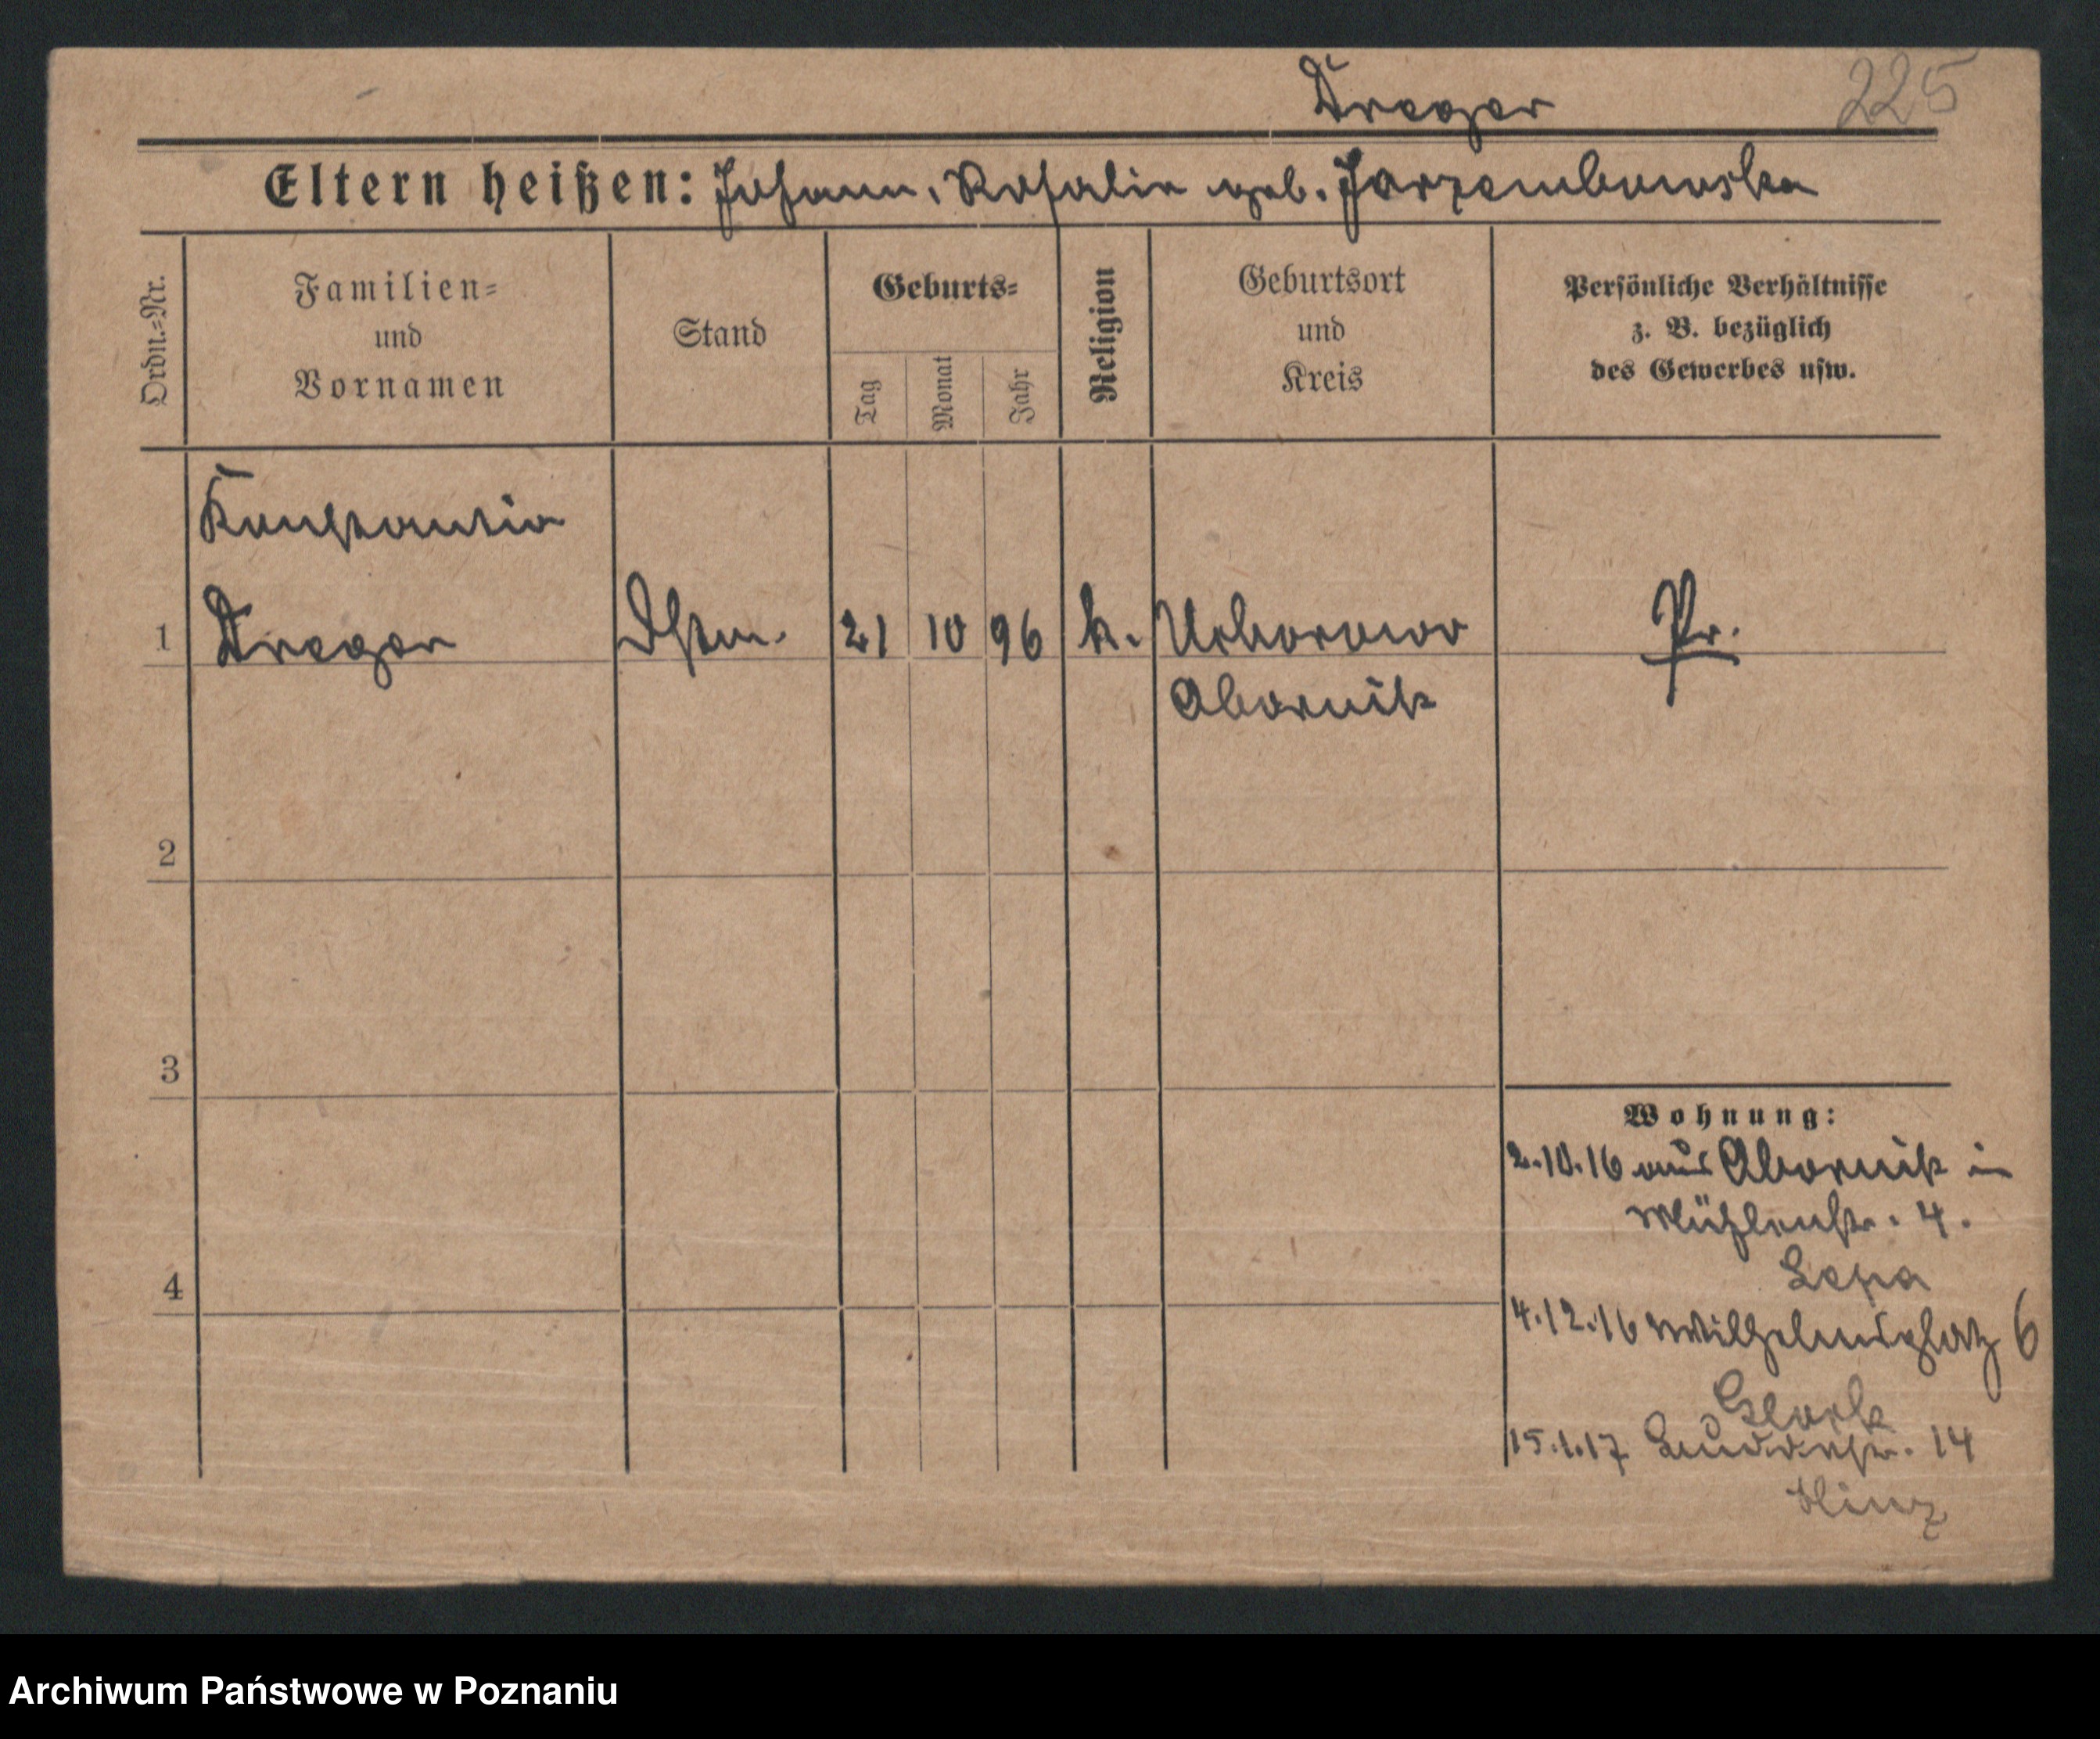 Dreger 225
Eltern heißen: Johann, Rosalie geb. Jarzembowska
Ordn.=Nr.
Familien=
und
Vornamen
Stand
Geburts=
Tag
Monat
Jahr
Religion
Geburtsort
und
Kreis
Persönliche Verhältnisse
z. B. bezüglich
des Gewerbes usw.
Konstantia
1 Dreger Dstm. 21 10 96 k. Uchorowo Pr.
Obornik
2
3
4
Wohnung:
2.10.16 aus Obornik in
Mühlenstr. 4.
Lepa
4.12.16 Wilhelmsplatz 6
15.1.17 14
Hinz
Archiwum Państwowe w Poznaniu